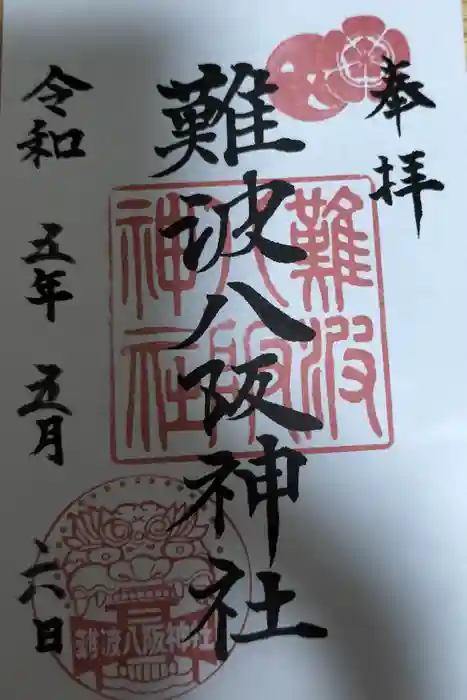 奉拝
難波八阪神社
難波
八阪
神社
令和 五年 五月 六日
難波八阪神社